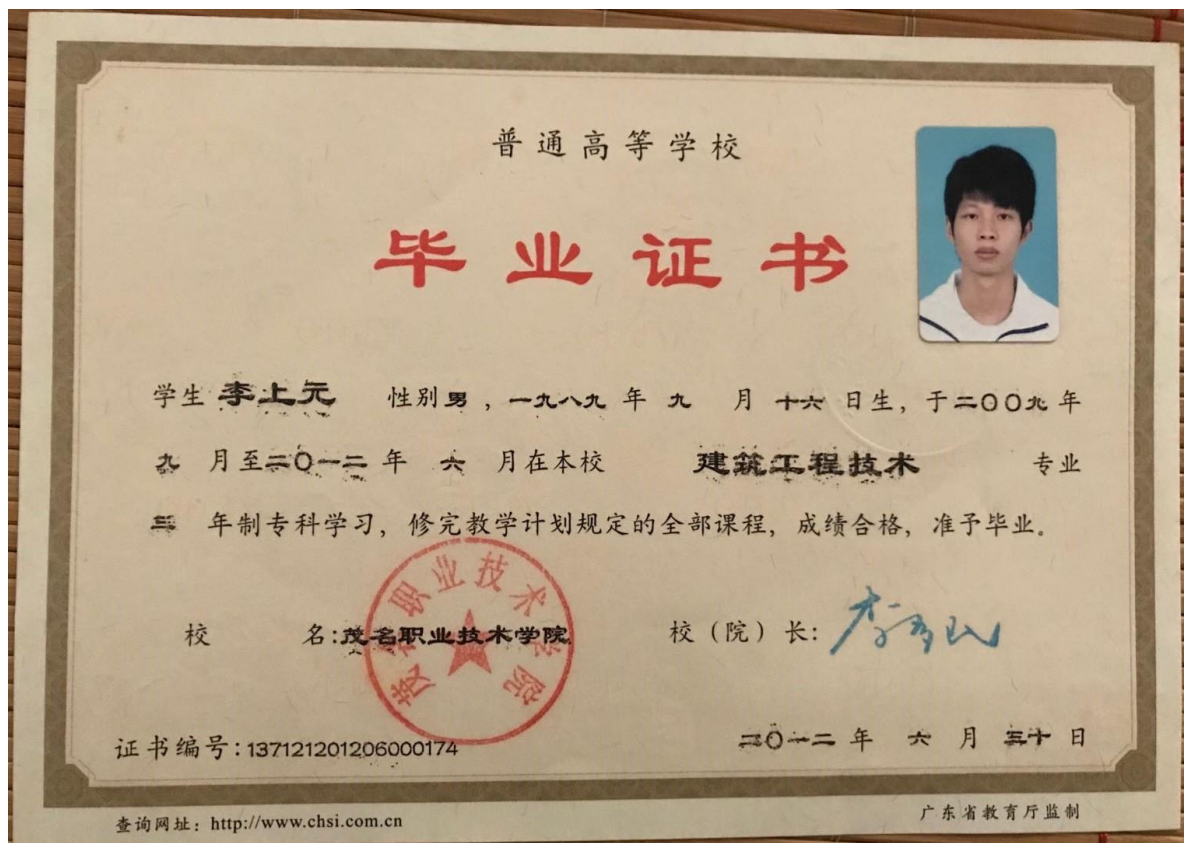 普通高等学校
毕业证书
学生 李上元 性别 男 , 一九八九 年 九 月 十六 日生, 于二〇〇九 年
九 月至二〇一二 年 六 月在本校 建筑工程技术 专业
三 年制专科学习, 修完教学计划规定的全部课程, 成绩合格, 准予毕业。
茂名职业技术学院
校 名:茂名职业技术学院 校（院）长:
证书编号:137121201206000174 二〇一二 年 六 月 三十 日
查询网址: http://www.chsi.com.cn 广东省教育厅监制